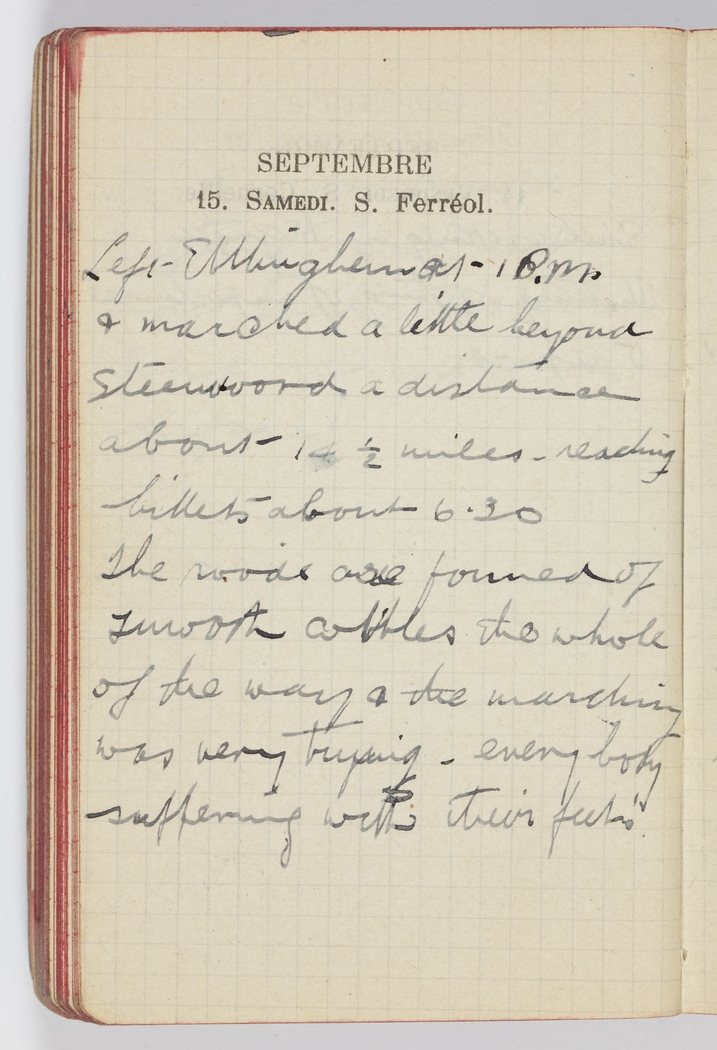 SEPTEMBRE
15. SAMEDI. S. Ferréol.
Left Ebblinghem at 1 P.M.
& marched a little beyond
Steenvoord a distance
about 14 ½ miles - reaching
billets about 6.30
The roads are formed of
smooth cobbles the whole
of the way & the marching
was very trying - everybody
suffering with their feet.